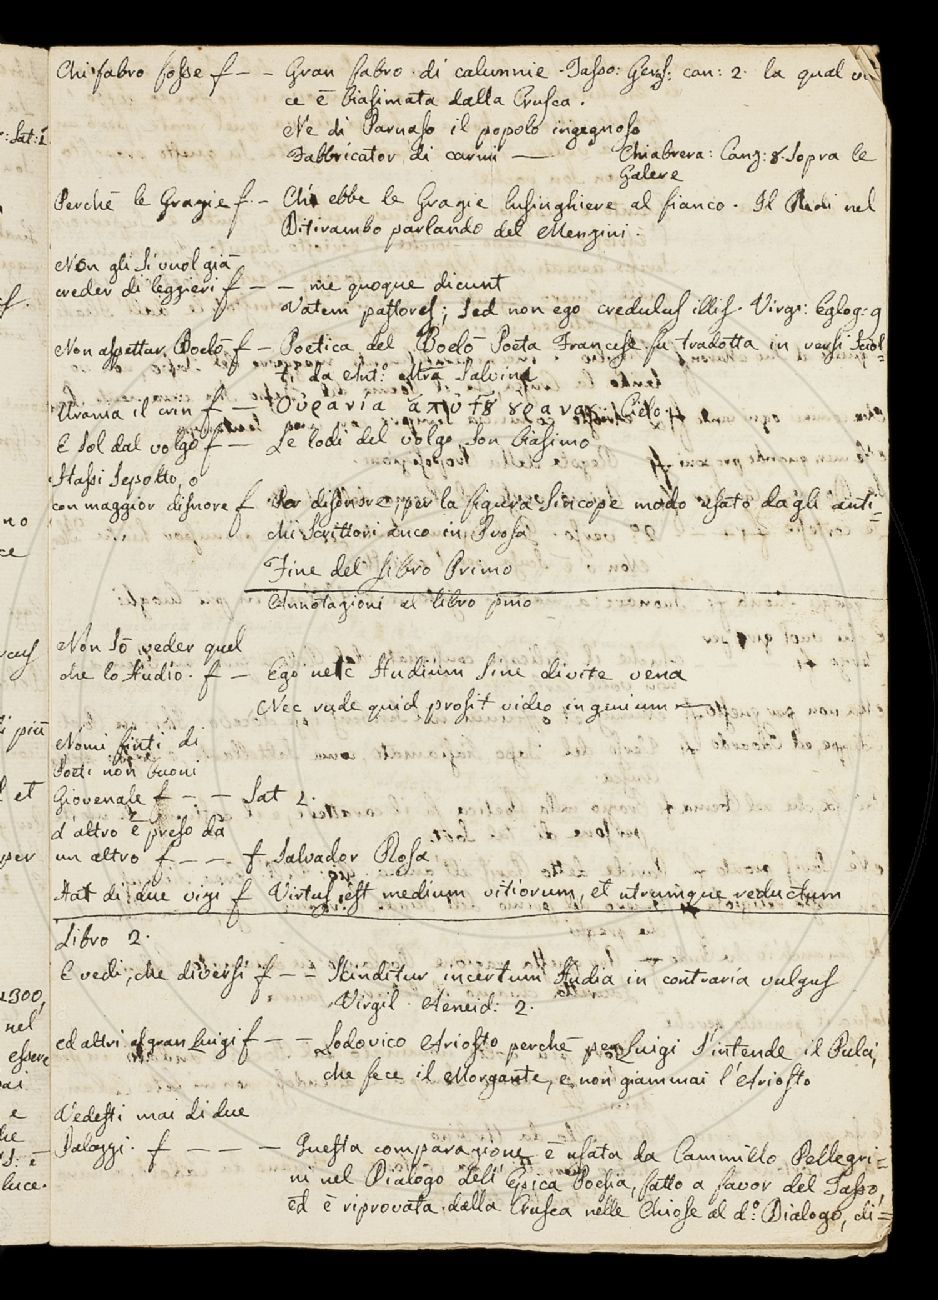 Chi fabro fosse f - - Gran fabro di calunnie. Tasso: Gerus: can: 2. la qual vo
ce è biasimata dalla Crusca.
Ne di Parnaso il popolo ingegnoso
Fabbricator di carmi — Chiabrera: Canz: 8. Sopra le
Galere
Perchè le Grazie f. - Chi ebbe le Grazie lusinghiere al fianco. Il Redi nel
Ditirambo parlando del Menzini.
Non gli si vuol già
creder di leggieri f - - me quoque dicunt
Vatem pastores; sed non ego credulus illis. Virg: Eglog: 9
Non aspettar Boelò f - Poetica del Boelò Poeta Francese fu tradotta in versi Sciol=
ti da Ant.º Mra Salvini
Urania il crin f - Ουρανία ἀπὸ τȣ ȣρανοῦ Cielo
E sol dal volgo f - Le lodi del volgo son biasimo
Stassi sepolto, o
con maggior disnore f Per disonore, per la figura sincope modo usato dagli anti=
chi Scrittori anco in Prosa
Fine del libro Primo
Annotazioni al libro pmo
Non sò veder quel
che lo studio. f - Ego nec studium sine divite vena
Nec rude quid prosit video ingenium
Nomi finti di
Poeti non buoni
Giovenale f - - Sat 2.
d'altro è preso da
un altro f - - f Salvador Rosa
Stat di due vizi f Virtus est medium vitiorum, et utrumque reductum
Libro 2.
E vedi, che diversi f - - Skinditur incertum studia in contraria vulgus
Virgil. Aeneid: 2.
ed altri al gran Luigi f - - Lodovico Ariosto perchè per Luigi s'intende il Pulci,
che fece il Morgante, e non giammai l'Ariosto
Vedesti mai di due
Palazzi. f - - - - Questa comparazione è usata da Cammillo Pellegri=
ni nel Dialogo dell'Epica Poesia, fatto a favor del Tasso,
ed è riprovata dalla Crusca nelle Chiose al d.º Dialogo, di=